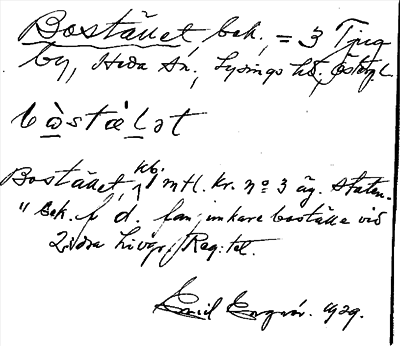 Bostället, bek., = 3 Tjug
by, Heda sn., Lysings hd., Östergl.
bòstæ̀lət
Bostället, kb. mtl. kr. nº 3 äg. Staten.
" bek. f d. fanjunkare boställe vid
2:dra Livgr. Reg:tet.
Emil 1929.